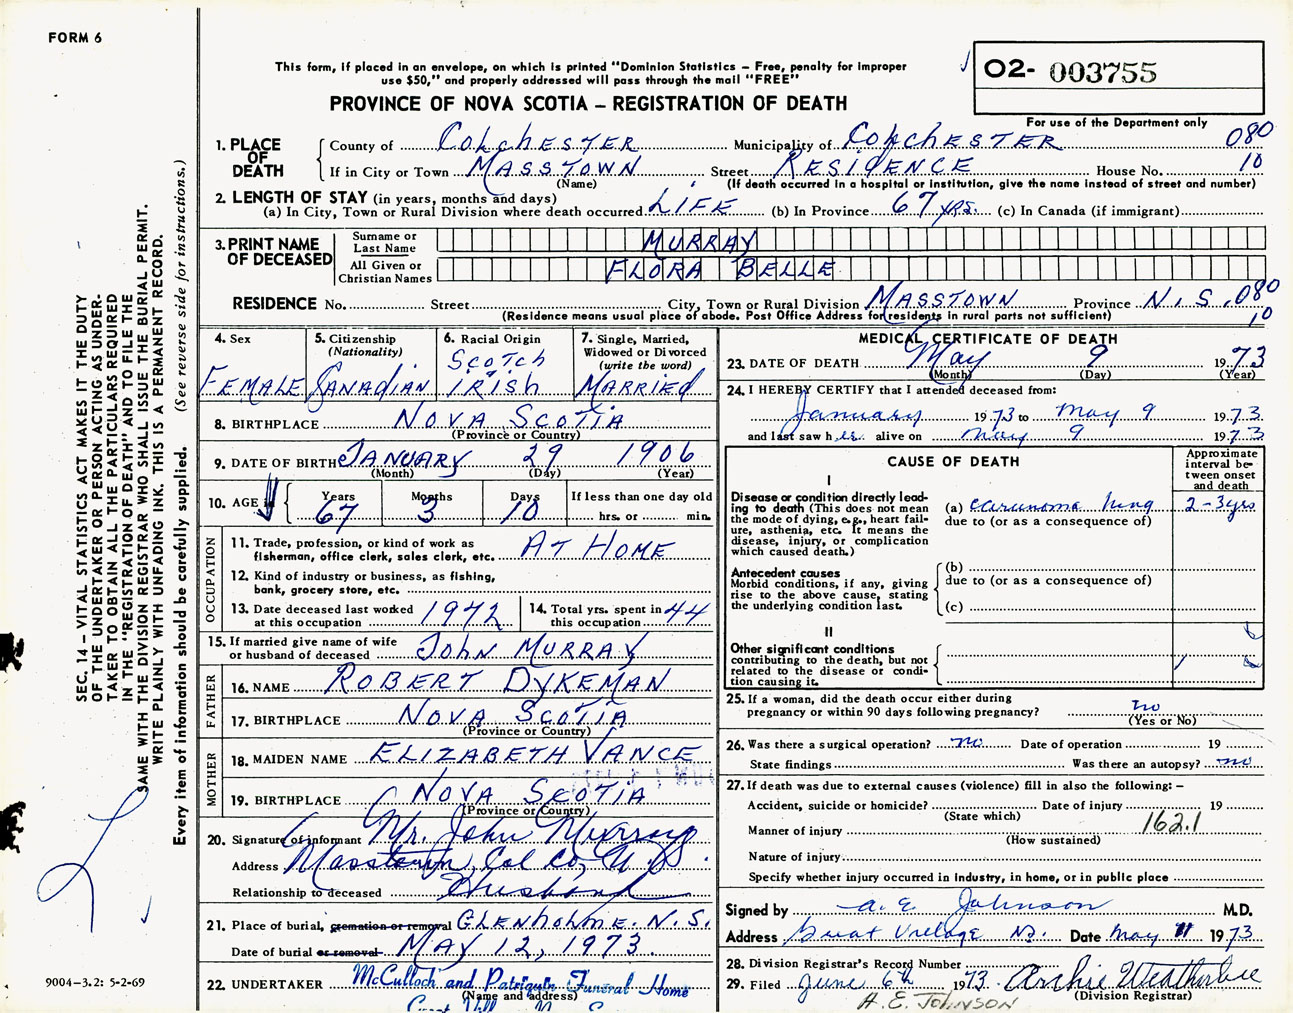 FORM 6
This form, if placed in an envelope, on which is printed "Dominion Statistics – Free, penalty for improper
use $50," and properly addressed will pass through the mail "FREE"
O2- 003755
For use of the Department only
PROVINCE OF NOVA SCOTIA – REGISTRATION OF DEATH
SEC. 14 – VITAL STATISTICS ACT MAKES IT THE DUTY
OF THE UNDERTAKER OR PERSON ACTING AS UNDER-
TAKER TO OBTAIN ALL THE PARTICULARS REQUIRED
IN THE "REGISTRATION OF DEATH" AND TO FILE THE
SAME WITH THE DIVISION REGISTRAR WHO SHALL ISSUE THE BURIAL PERMIT.
WRITE PLAINLY WITH UNFADING INK. THIS IS A PERMANENT RECORD.
Every item of information should be carefully supplied. (See reverse side for instructions.)
1. PLACE OF DEATH
County of COLCHESTER Municipality of COLCHESTER 080
If in City or Town MASSTOWN Street RESIDENCE House No. 10
(Name) (If death occurred in a hospital or institution, give the name instead of street and number)
2. LENGTH OF STAY (in years, months and days)
(a) In City, Town or Rural Division where death occurred LIFE (b) In Province 67 yrs. (c) In Canada (if immigrant)
3. PRINT NAME OF DECEASED
Surname or Last Name MURRAY
All Given or Christian Names FLORA BELLE
RESIDENCE No. Street City, Town or Rural Division MASSTOWN Province N.S. 080
(Residence means usual place of abode. Post Office Address for residents in rural parts not sufficient) 10
4. Sex FEMALE
5. Citizenship (Nationality) CANADIAN
6. Racial Origin SCOTCH IRISH
7. Single, Married, Widowed or Divorced (write the word) MARRIED
8. BIRTHPLACE NOVA SCOTIA
(Province or Country)
9. DATE OF BIRTH JANUARY 29 1906
(Month) (Day) (Year)
10. AGE Years 67 Months 3 Days 10 If less than one day old
hrs. or min.
OCCUPATION
11. Trade, profession, or kind of work as
fisherman, office clerk, sales clerk, etc. AT HOME
12. Kind of industry or business, as fishing,
bank, grocery store, etc.
13. Date deceased last worked at this occupation 1972
14. Total yrs. spent in this occupation 44
15. If married give name of wife
or husband of deceased JOHN MURRAY
FATHER
16. NAME ROBERT DYKEMAN
17. BIRTHPLACE NOVA SCOTIA
(Province or Country)
MOTHER
18. MAIDEN NAME ELIZABETH VANCE
19. BIRTHPLACE NOVA SCOTIA
(Province or Country)
20. Signature of informant Mr. John Murray
Address Masstown, Col Co, N.S.
Relationship to deceased Husband
21. Place of burial, cremation or removal GLENHOLME. N.S.
Date of burial or removal MAY 12, 1973.
22. UNDERTAKER McCulloch and Patriquin Funeral Home
(Name and address)
MEDICAL CERTIFICATE OF DEATH
23. DATE OF DEATH May 9 1973
(Month) (Day) (Year)
24. I HEREBY CERTIFY that I attended deceased from:
January 1973 to May 9 1973
and last saw her alive on May 9 1973
CAUSE OF DEATH
Approximate interval between onset and death
I
Disease or condition directly lead-
ing to death (This does not mean
the mode of dying, e.g., heart fail-
ure, asthenia, etc. It means the
disease, injury, or complication
which caused death.)
(a) carcinoma lung 2-3 yrs
due to (or as a consequence of)
Antecedent causes
Morbid conditions, if any, giving
rise to the above cause, stating
the underlying condition last.
(b)
due to (or as a consequence of)
(c)
II
Other significant conditions
contributing to the death, but not
related to the disease or condi-
tion causing it.
25. If a woman, did the death occur either during
pregnancy or within 90 days following pregnancy? no
(Yes or No)
26. Was there a surgical operation? no Date of operation 19
State findings Was there an autopsy? no
27. If death was due to external causes (violence) fill in also the following: –
Accident, suicide or homicide? Date of injury 19
(State which)
Manner of injury 162.1
(How sustained)
Nature of injury
Specify whether injury occurred in industry, in home, or in public place
Signed by A. E. Johnson M.D.
Address Great Village NS. Date May 11 1973
28. Division Registrar's Record Number
29. Filed June 6th 1973 Archie Weatherbee
(Division Registrar)
A. E. JOHNSON
9004–3.2: 5-2-69